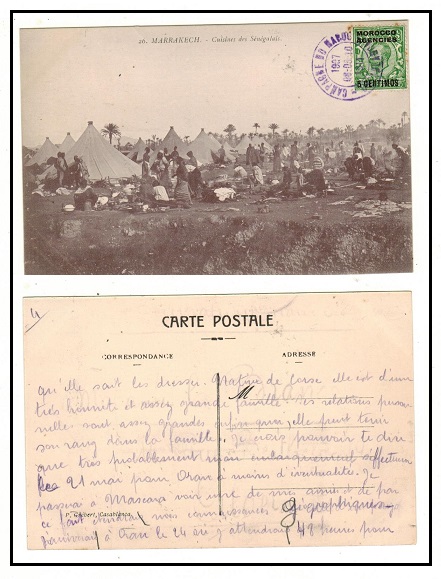 26. MARRAKECH. - Cuisines des Sénégalais.
CAMPAGNE DU MAROC
1907
MOROCCO
AGENCIES
5 CENTIMOS
4
CARTE POSTALE
CORRESPONDANCE ADRESSE
M
qu'elle sait les dresser. Native de Corse elle est d'une
très honnête et assez grande famille. Ses relations person
nelles sont assez grandes elle peut tenir
son rang dans la famille. Je crois pouvoir te dire
que très probablement mon embarquement s'effectuera
le 21 mai pour Oran à moins d'éventualité. Je
passerai à Mascara voir une de mes amies et de par
ce fait nos connaissances géographiques
J'arriverai à Oran le 24 et j'y attendrai 48 heures pour
P. Grébert, Casablanca.